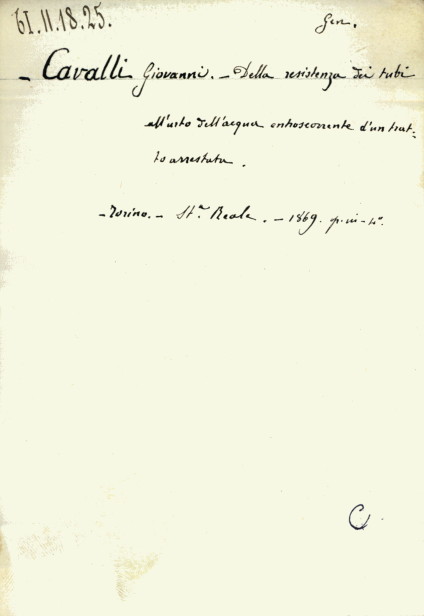 61.11.18.25.
Gen.
- Cavalli Giovanni. - Della resistenza dei tubi
all'urto dell'acqua entroscorrente d'un trat-
to arrestata.
- Torino. - St.ª Reale. - 1869. p. in-4º.
C